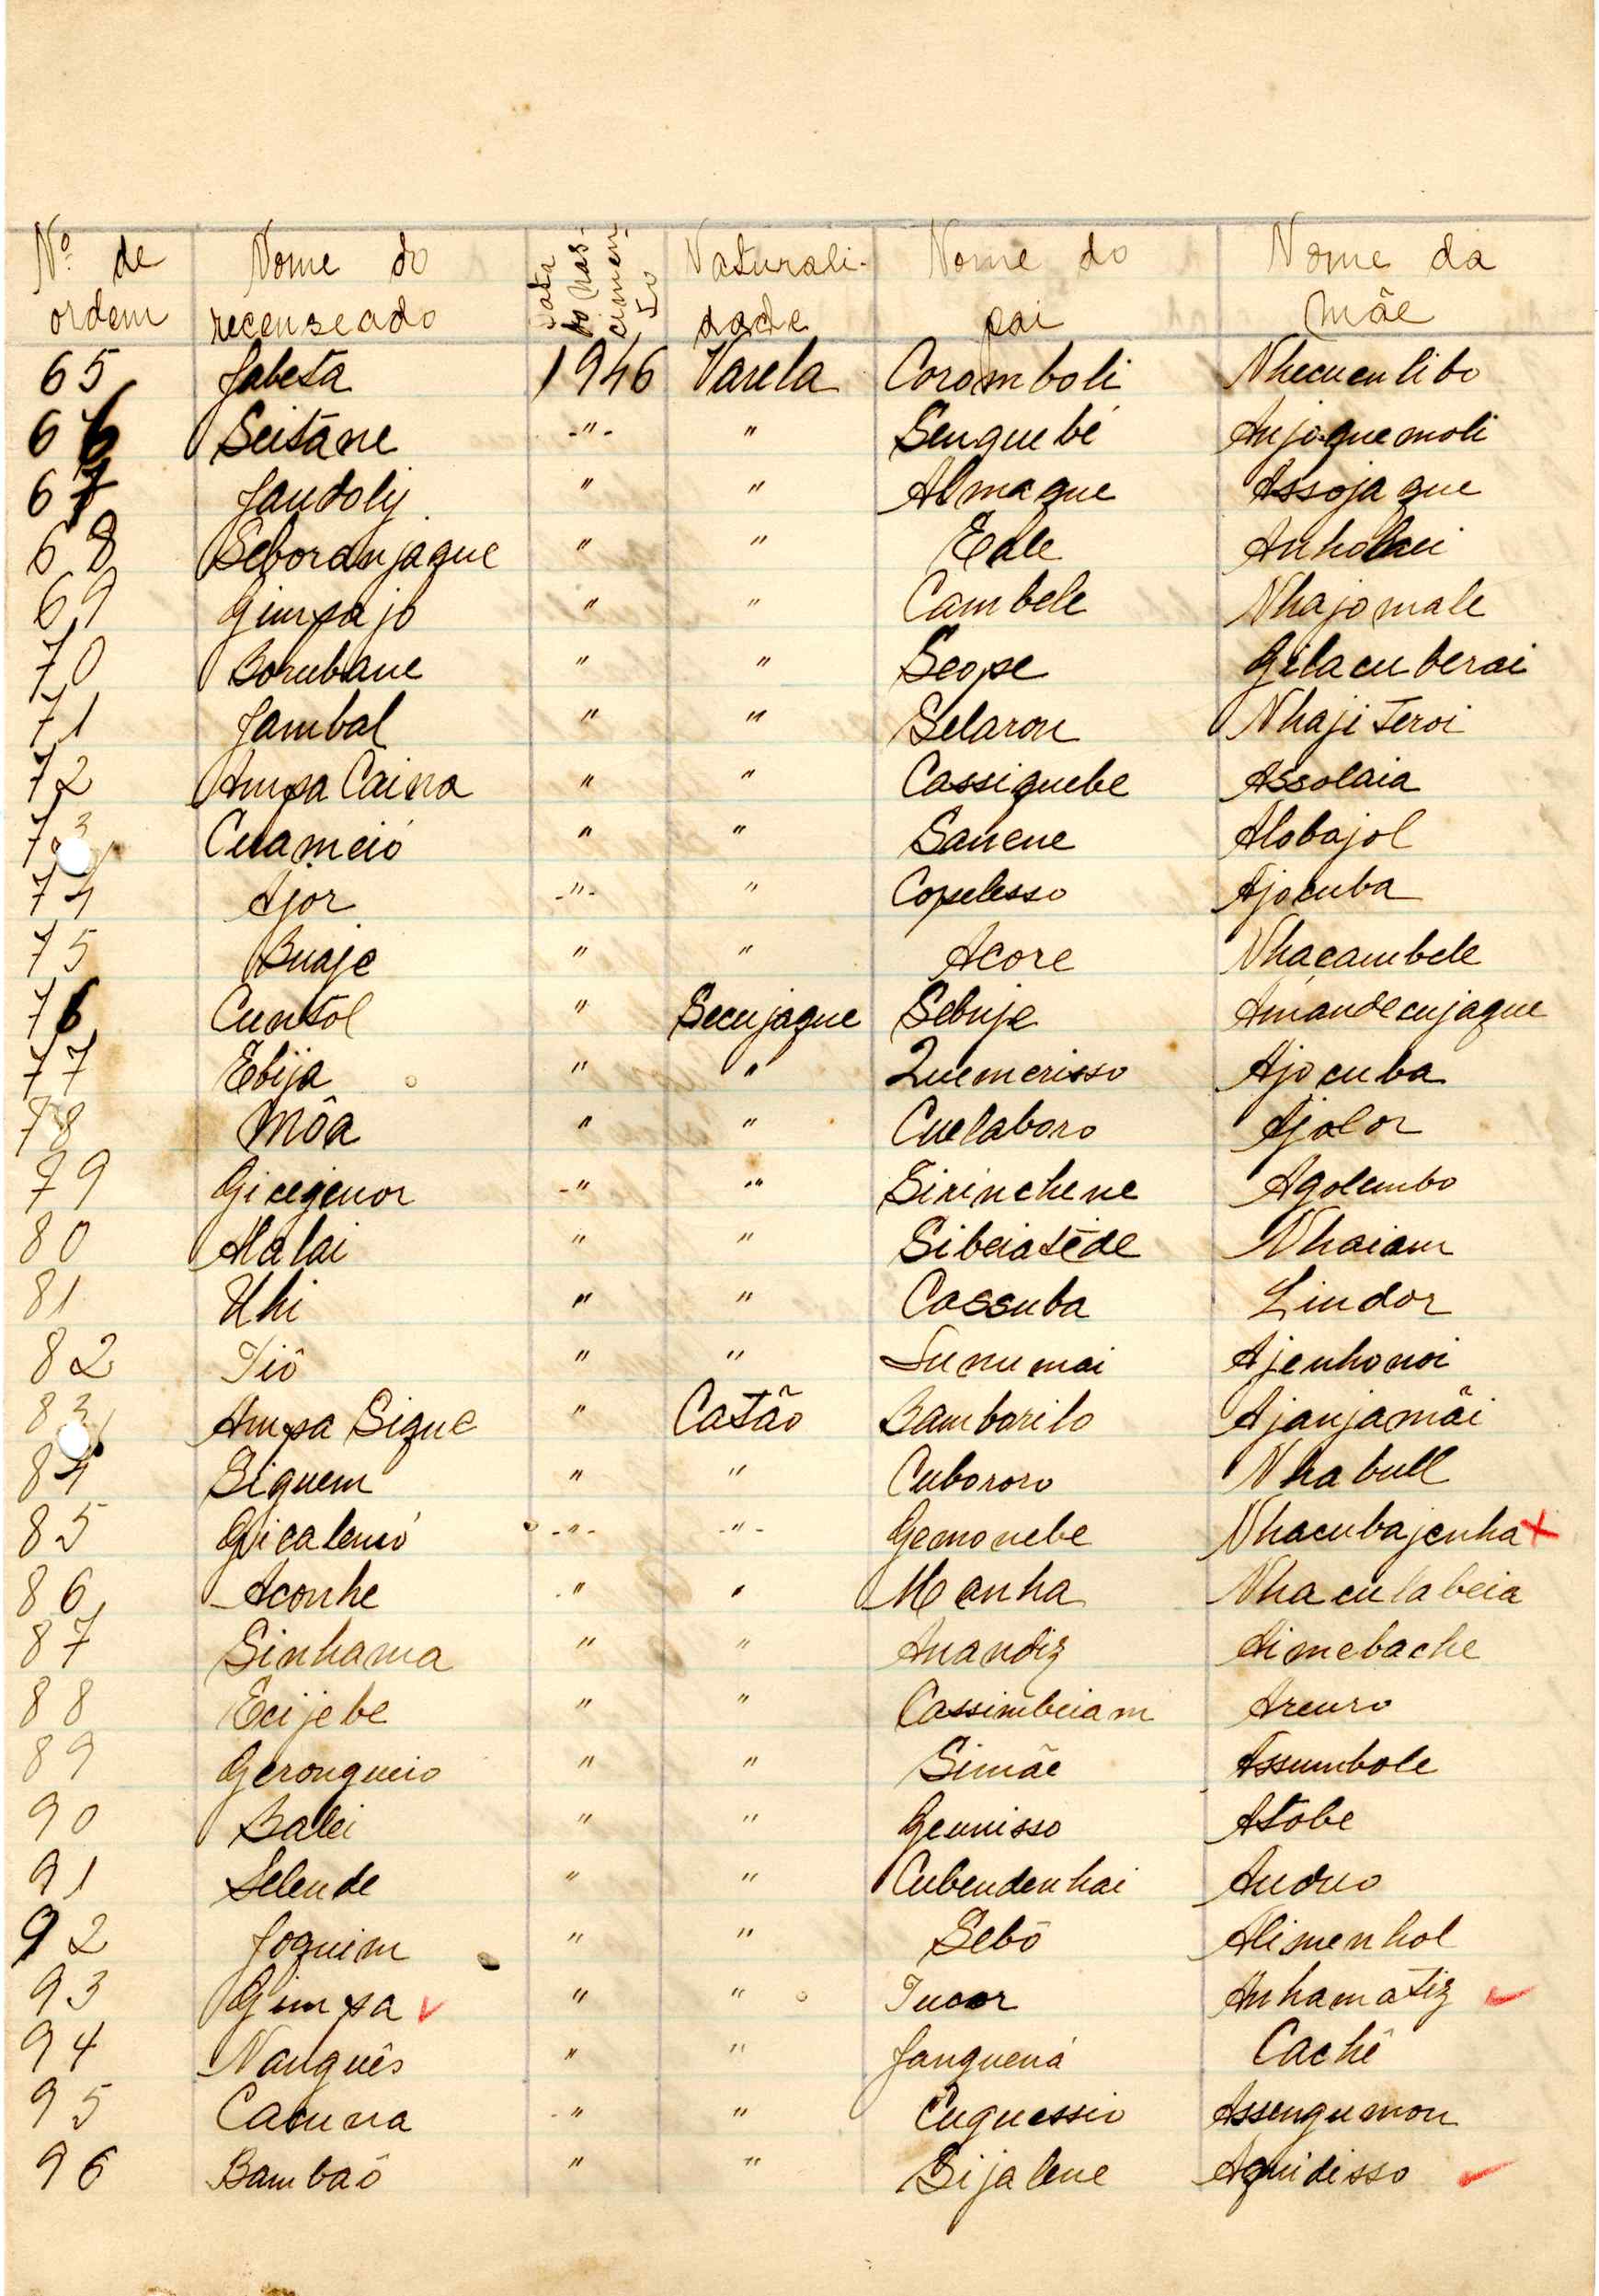 Nº de ordem Nome do recenseado Data do nascimento Naturalidade Nome do pai Nome da Mãe
65 Jabeta 1946 Varela Coromboli Nhecuculibo
66 Seitane -"- " Senguebé Anjoquemoli
67 Jandoly " " Almaque Assojaque
68 Seboranjaque " " Eale Anholai
69 Gimpajo " " Cambele Nhajomale
70 Borubane " " Seope Gilacuberai
71 Jambal " " Selaron Nhajiteroi
72 Ampa Caina " " Cassiguebe Assolaia
73 Cuameió " " Sanene Alobajol
74 Ajor -"- " Copelesso Ajocuba
75 Buaje " " Acore Nhacambele
76 Cuntol " Secujaque Sebuje Amandecujaque
77 Ebija " " Quemerisso Ajocuba
78 Môa " " Cuelaboro Ajolor
79 Gicegenor -" " Sirinchene Agolembo
80 Alalai " " Sibeiatede Nhaiam
81 Uhi " " Cassuba Lindor
82 Tiô " " Sunumai Ajenhonoi
83 Ampa Sigue " Catão Bamborilo Ajanjamãi
84 Siguem " " Cubororo Nhabull
85 Gicalemó -"- -"- Gemonebe Nhacubajenha
86 Aconhe " " Manha Nhaculabeia
87 Sinhama " " Anandiz Aimebache
88 Ecijebe " " Cassimbeiam Arcuro
89 Gerongueio " " Simãe Assumbole
90 Balei " " Geunisso Atobe
91 Selende " " Cubendenhai Anduo
92 Joquim " " Sebô Alimenhol
93 Gimpa " " Tucor Anhamatiz
94 Nanguês " " Janguená Cachê
95 Cacuna -" " Cuguessio Assenguemon
96 Bambaô " " Sijalene Aquidisso